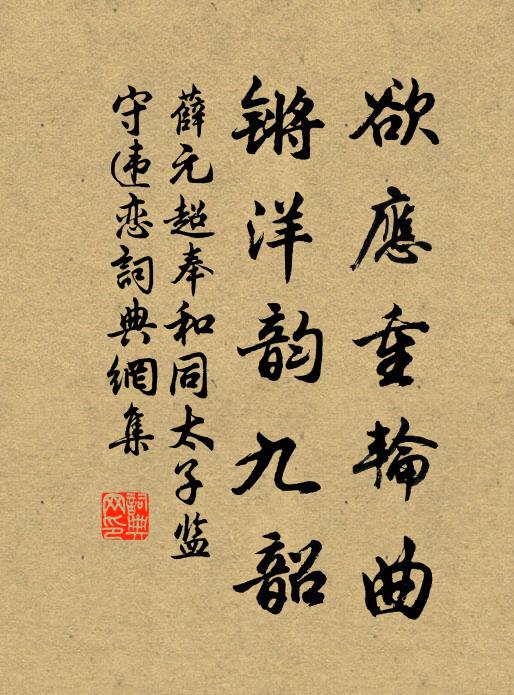 欲應重輪曲
锵洋韵九韶
薛元超奉和同太子监
守违恋詞典網集
詞典
网印